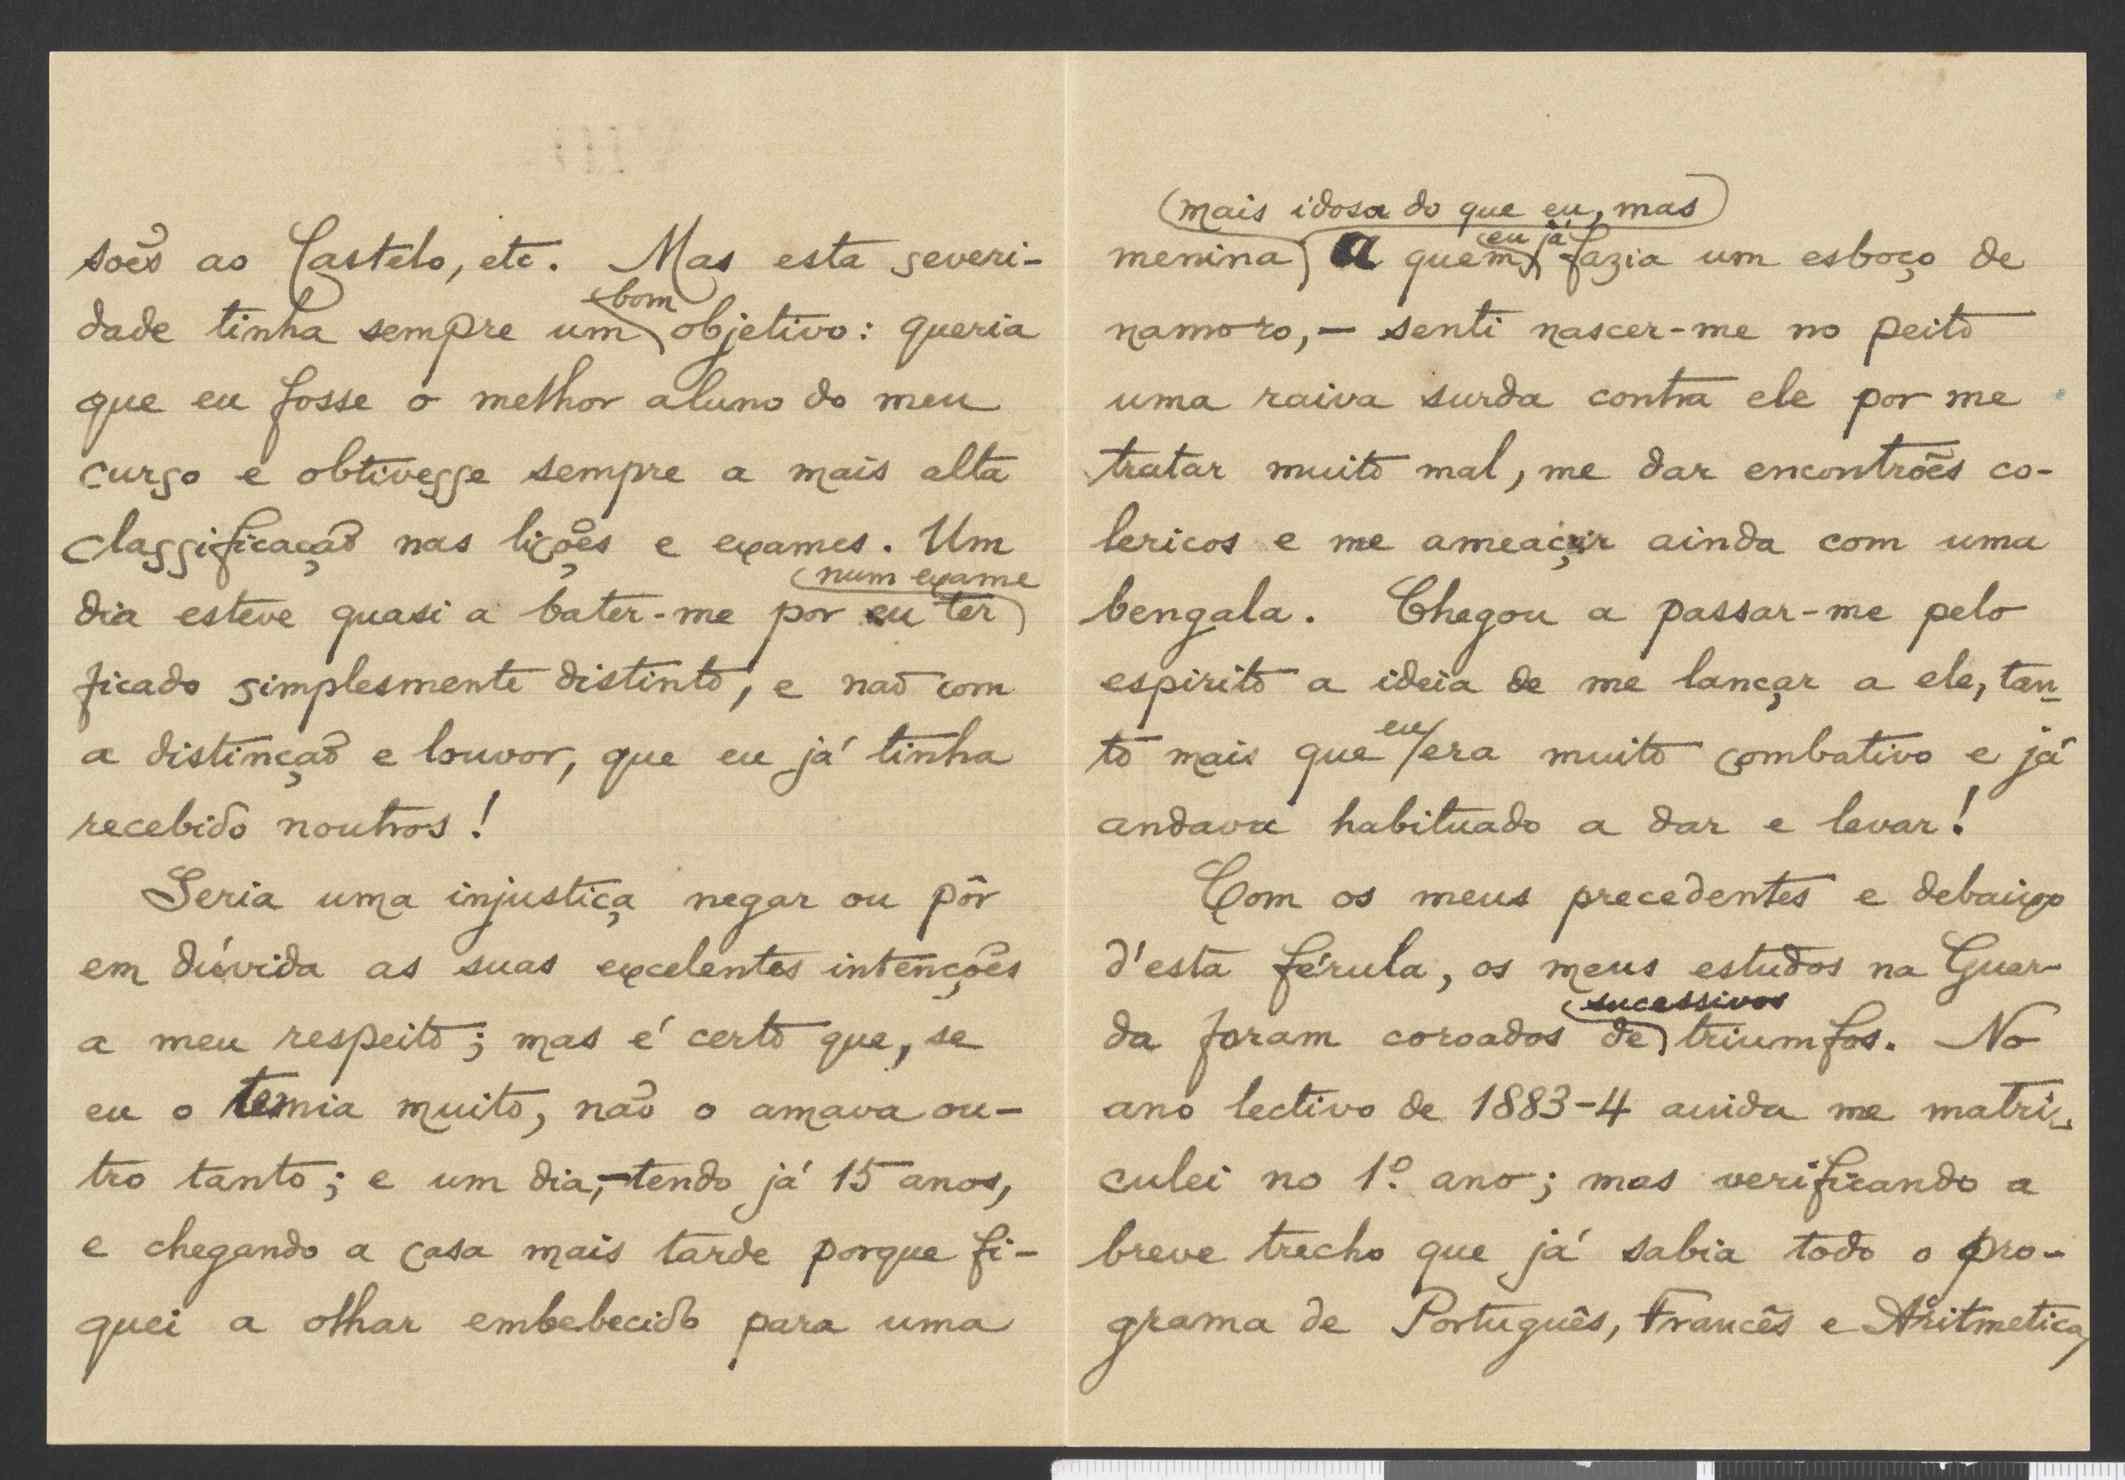 soẽs ao Castelo, etc. Mas esta severi-
bom
dade tinha sempre um objetivo: queria
que eu fosse o melhor aluno do meu
curso e obtivesse sempre a mais alta
classificação nas lições e exames. Um
num exame
dia esteve quasi a bater-me por eu ter
ficado simplesmente distinto, e não com
a distinção e louvor, que eu já tinha
recebido noutros!
Seria uma injustiça negar ou pôr
em dúvida as suas excelentes intenções
a meu respeito; mas é certo que, se
eu o temia muito, não o amava ou-
tro tanto; e um dia,-tendo já 15 anos,
e chegando a casa mais tarde porque fi-
quei a olhar embebecido para uma
mais idosa do que eu, mas
eu já
menina a quem fazia um esboço de
namoro,- senti nascer-me no peito
uma raiva surda contra ele por me
tratar muito mal, me dar encontrões co-
lericos e me ameaçar ainda com uma
bengala. Chegou a passar-me pelo
espirito a ideia de me lançar a ele, tan-
eu
to mais que era muito combativo e já
andava habituado a dar e levar!
Com os meus precedentes e debaixo
d'esta férula, os meus estudos na Guar-
sucessivos
da foram coroados de triumfos. No
ano lectivo de 1883-4 ainda me matri-
culei no 1º ano; mas verificando a
breve trecho que já sabia todo o pro-
grama de Português, Francês e Aritmetica,